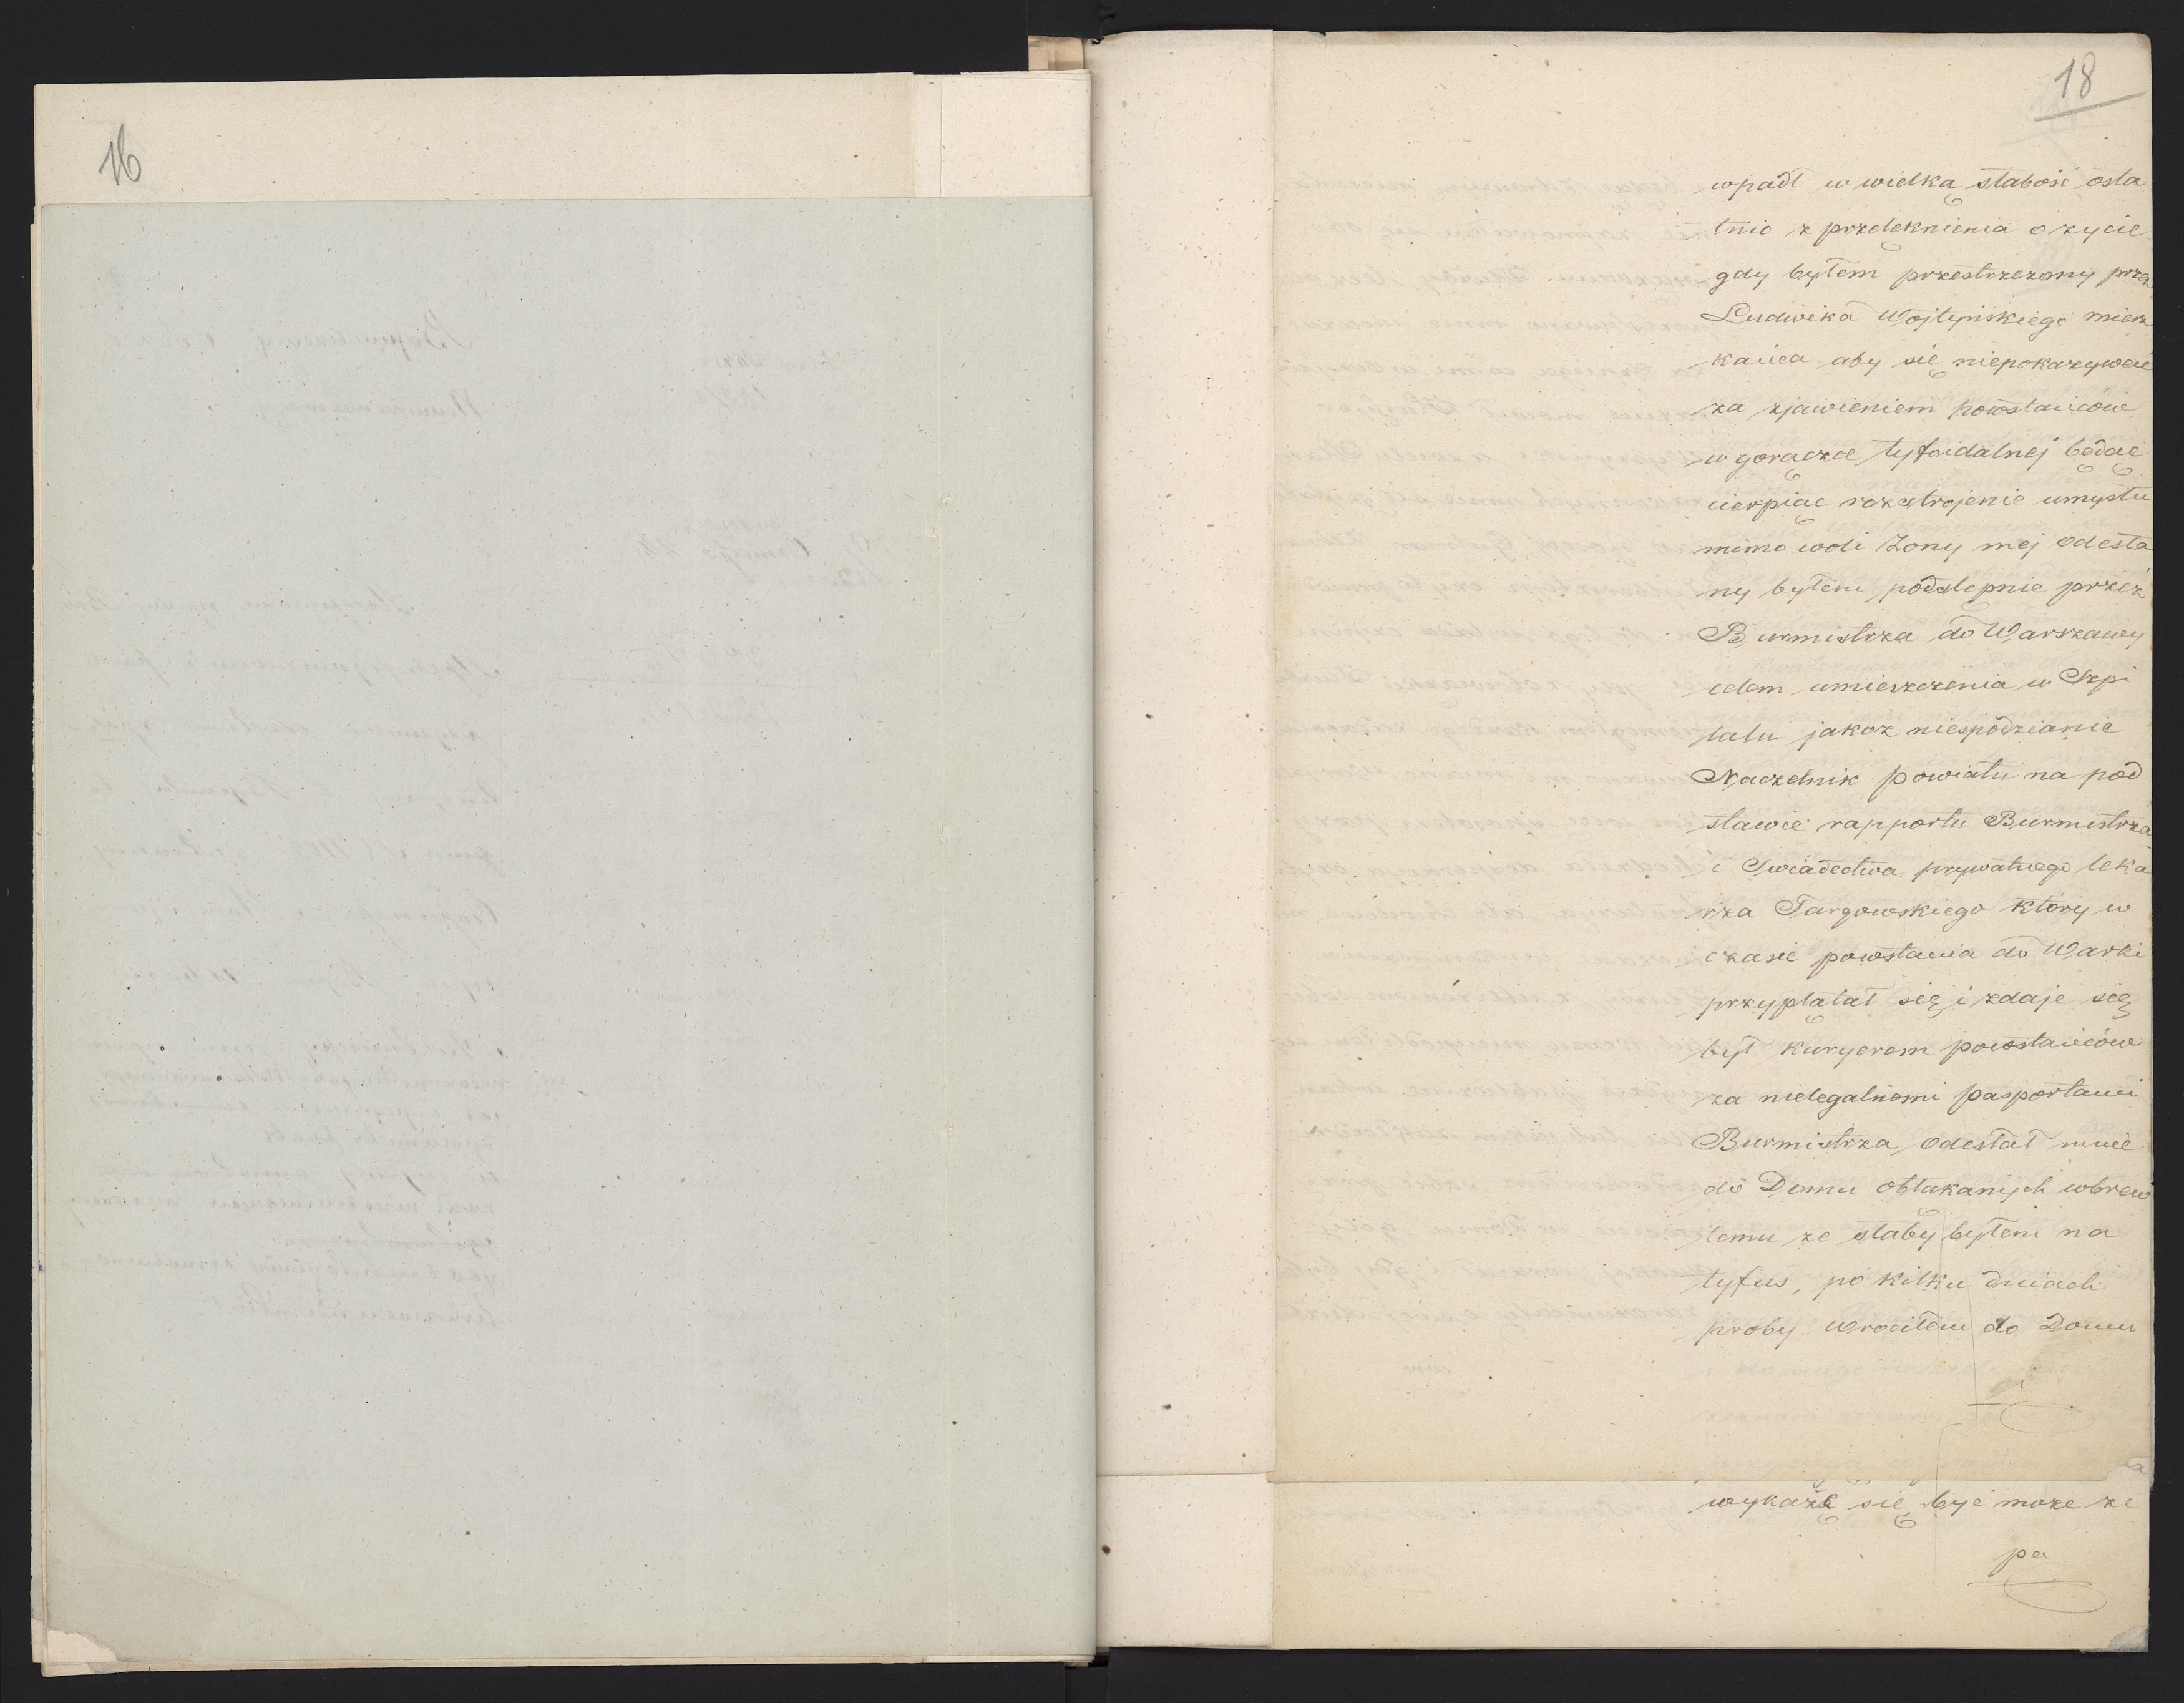 16
18
wpadł w wielką słabość osta
tnio z przelęknienia o zycie
gdy byłem przestrzezony przez
Ludwika Wojlepiskiego miesz
kańca aby się niepokazywać
za zjawieniem powstańców
w gorączce tyfoidalnej będąc
cierpiąc rozstrojenie umysłu
mimo woli Zony mej odesła
ny byłem podstępnie przez
Burmistrza do Warszawy
celem umieszczenia w Szpi
talu jakoz niespodzianie
Naczelnik powiatu na pod
stawie rapportu Burmistrza
i Swiadectwa prywatnego leka
rza Targowskiego który w
czasie powstania do Warki
przyplątał się i zdaje się
był Kuryerem powstańców
za nielegalnemi pasportami
Burmistrza odesłał mnie
do Domu obłąkanych wbrew
temu ze słaby byłem na
tyfus, po kilku dniach
proby wrociłem do Domu
i
wykażę się być moze ze
pa